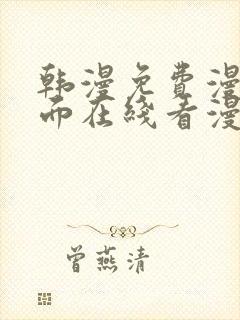 韩漫免费漫
而在线看漫
曾燕清